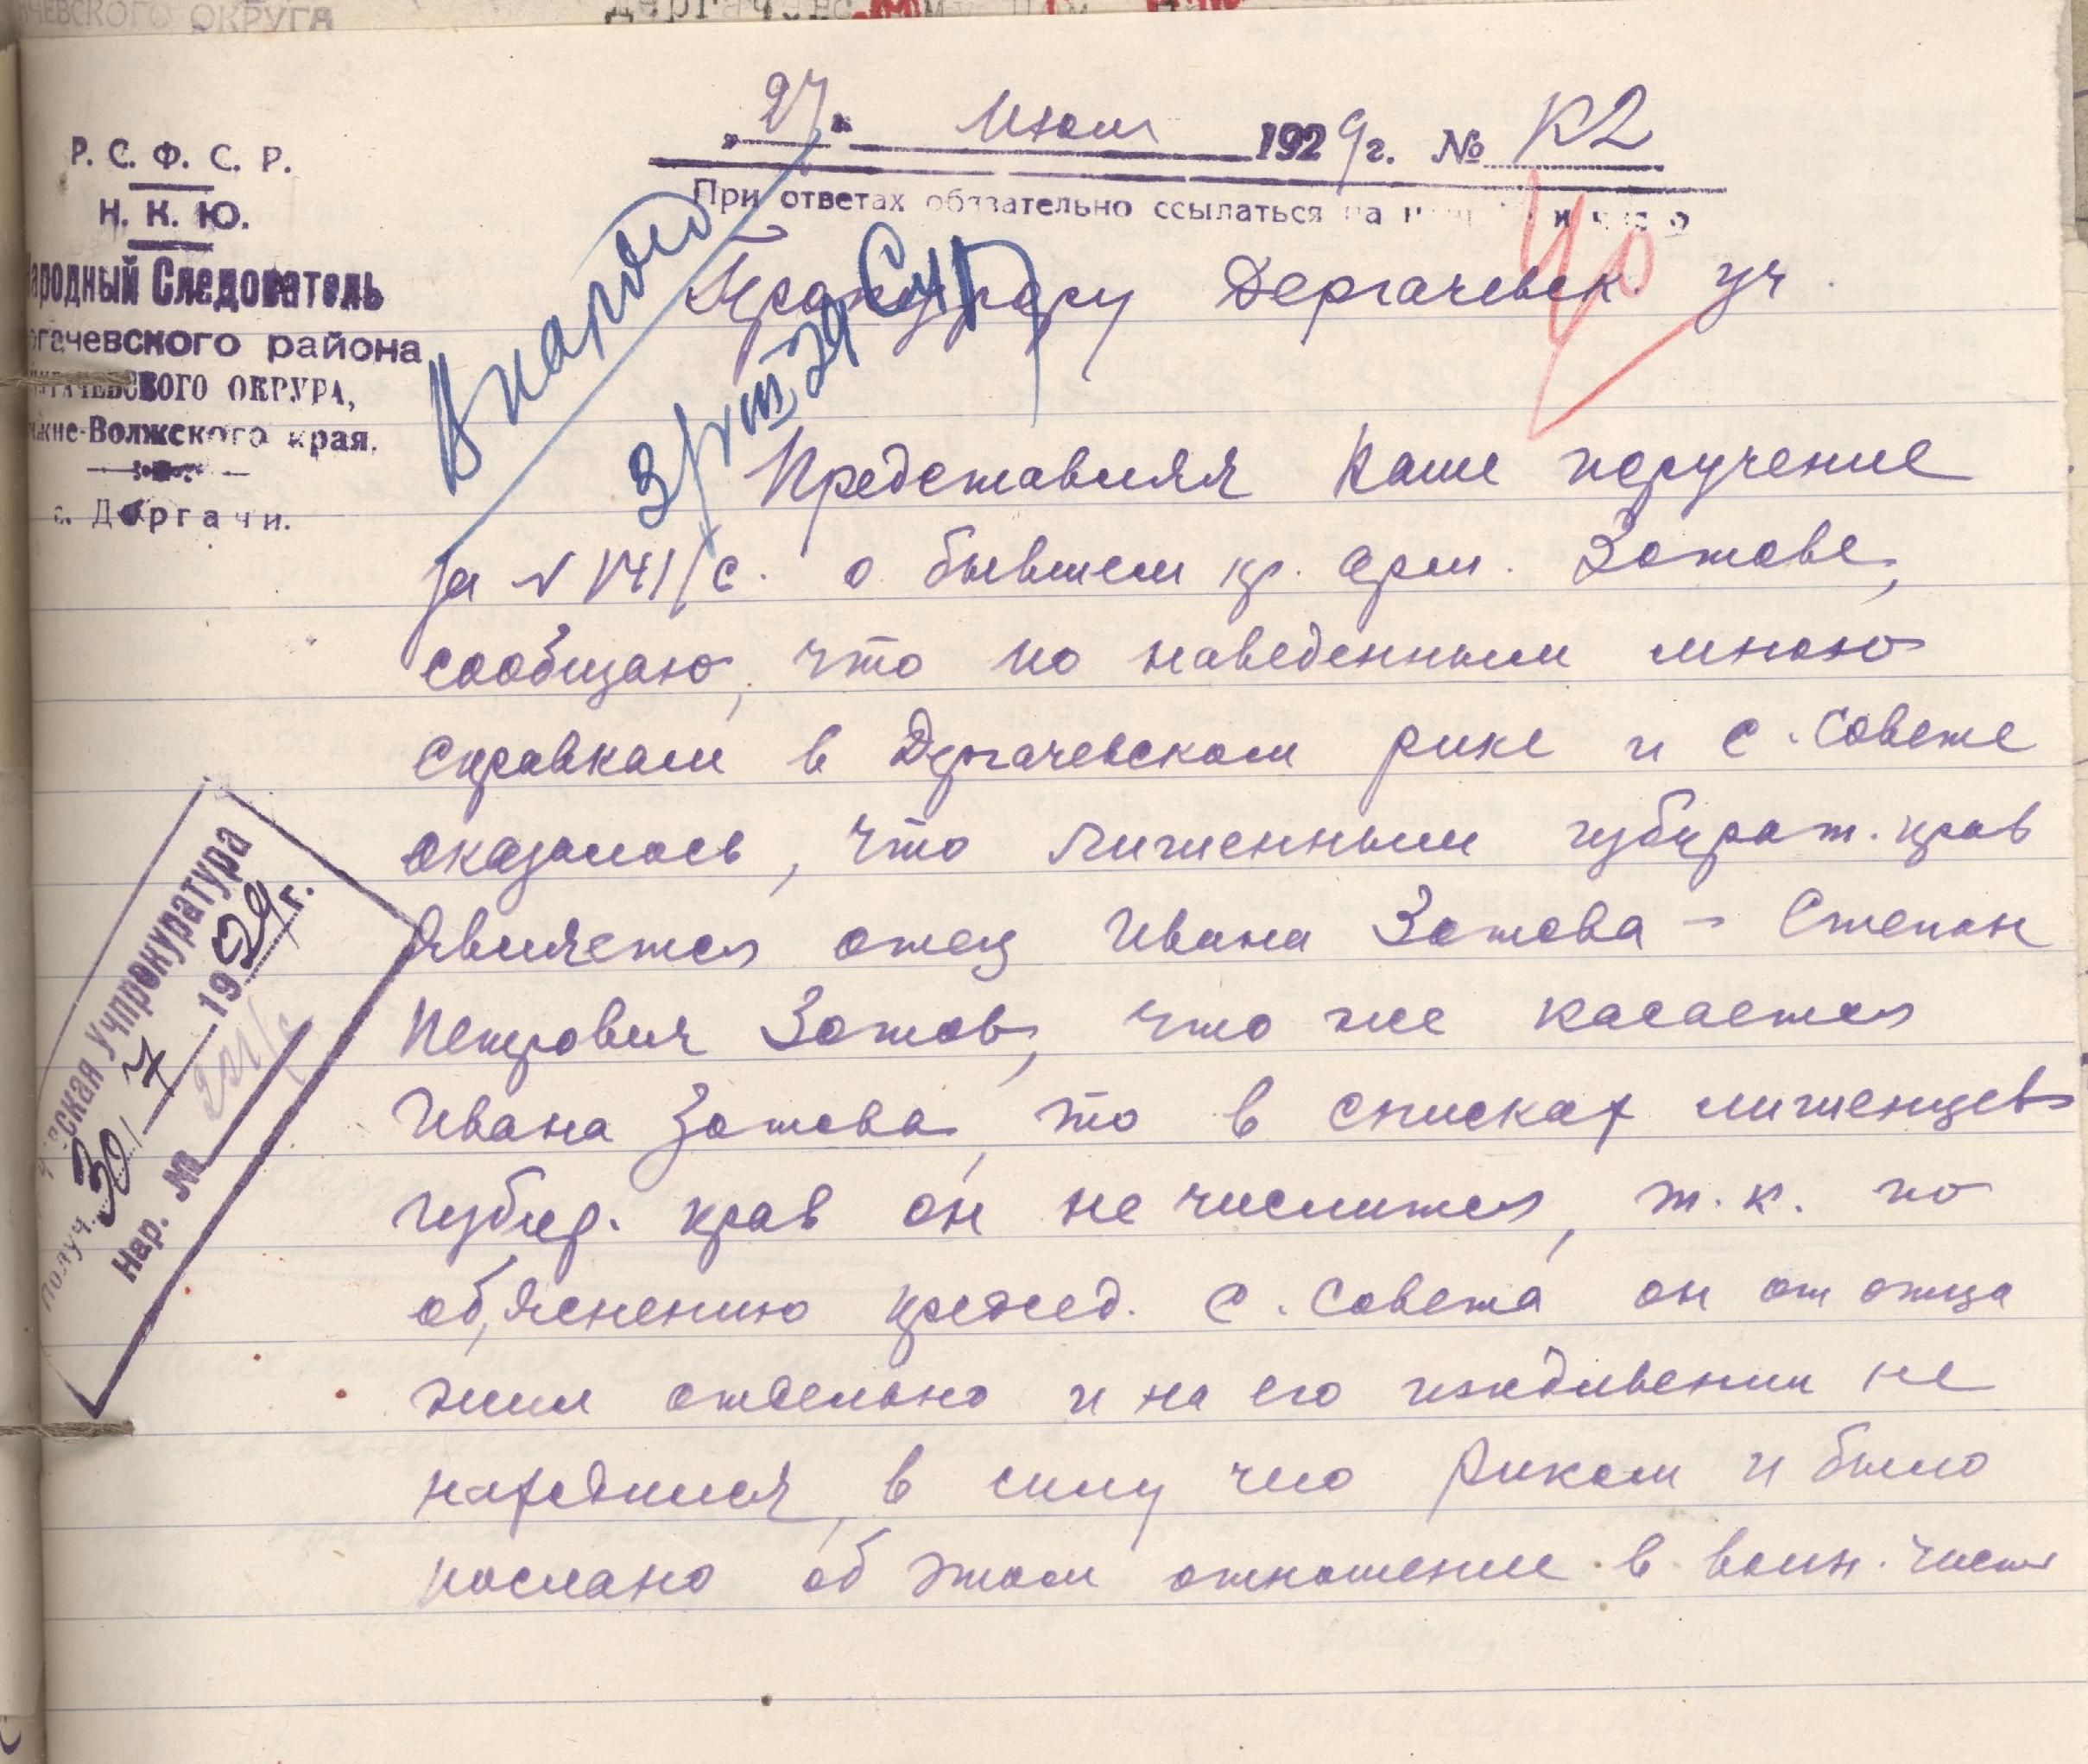 ЧЕВСКОГО ОКРУГА
Р. С. Ф. С. Р.
Н. К. Ю.
Народный Следователь
ргачевского района
ПУГАЧЕВСКОГО ОКРУГА,
Нижне-Волжского края.
с. Дергачи.
„27“ Июля 1929 г. № К2
При ответах обязательно ссылаться на и число
В наряд
3/VIII 29
40
Прокурору Дергачевск. уч.
Представляя Ваше поручение
за № 141/с. о бывшем кр. арм. Зотове,
сообщаю, что по наведенным мною
справкам в Дергачевском рике и с. Совете
оказалось, что лишенным избират. прав
является отец Ивана Зотова – Степан
Петрович Зотов, что же касается
Ивана Зотова, то в списках лишенцев
избир. прав он не числится, т. к. по
об,яснению председ. с. Совета он от отца
жил отдельно и на его иждивении не
находился, в силу чего Риком и было
послано об этом отношение в воин. часть
ская Учпрокуратура
Получ. 30/7 1929 г.
Нар. №